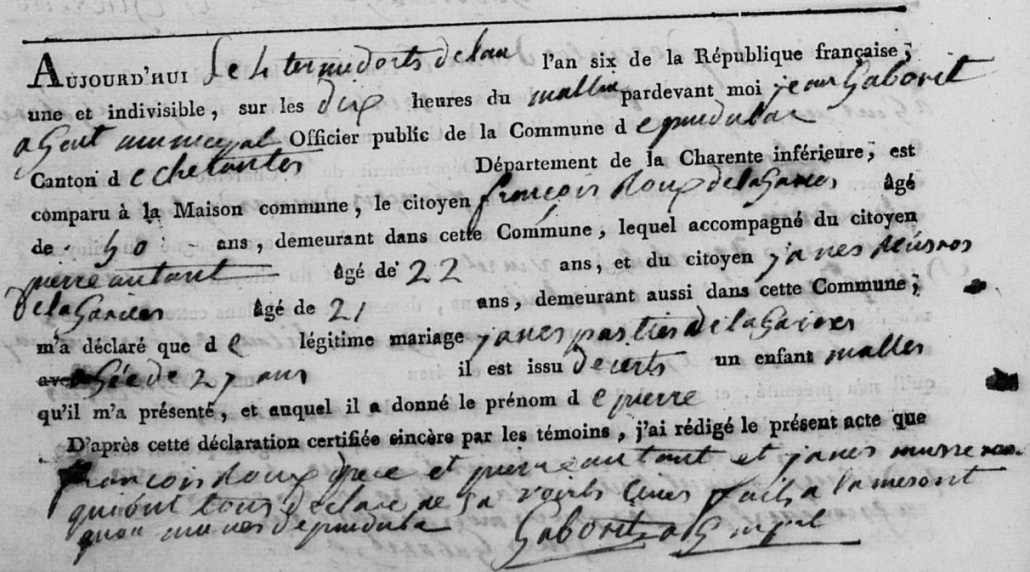 AUJOURD'HUI le 4 termidorts de lan l'an six de la République française,
une et indivisible, sur les dix heures du mattin pardevant moi jean Gaborit
agent municepal Officier public de la Commune d epuidubac
Canton d echetantes Département de la Charente inférieure, est
comparu à la Maison commune, le citoyen françois Roux de la Garies âgé
de 40 ans, demeurant dans cette Commune, lequel accompagné du citoyen
pierre autant âgé de 22 ans, et du citoyen janes
de la Garies âgé de 21 ans, demeurant aussi dans cette Commune;
m'a déclaré que d e légitime mariage janes partiers de la Garies
avec agée de 27 ans il est issu de certs un enfant malles
qu'il m'a présenté, et auquel il a donné le prénom d e pierre
D'après cette déclaration certifiée sincère par les témoins, j'ai rédigé le présent acte que
françois Roux pere et pierre autant et janes
quiont tous declare ne sa voirts Cines faits a la mesont
Gaborit agent